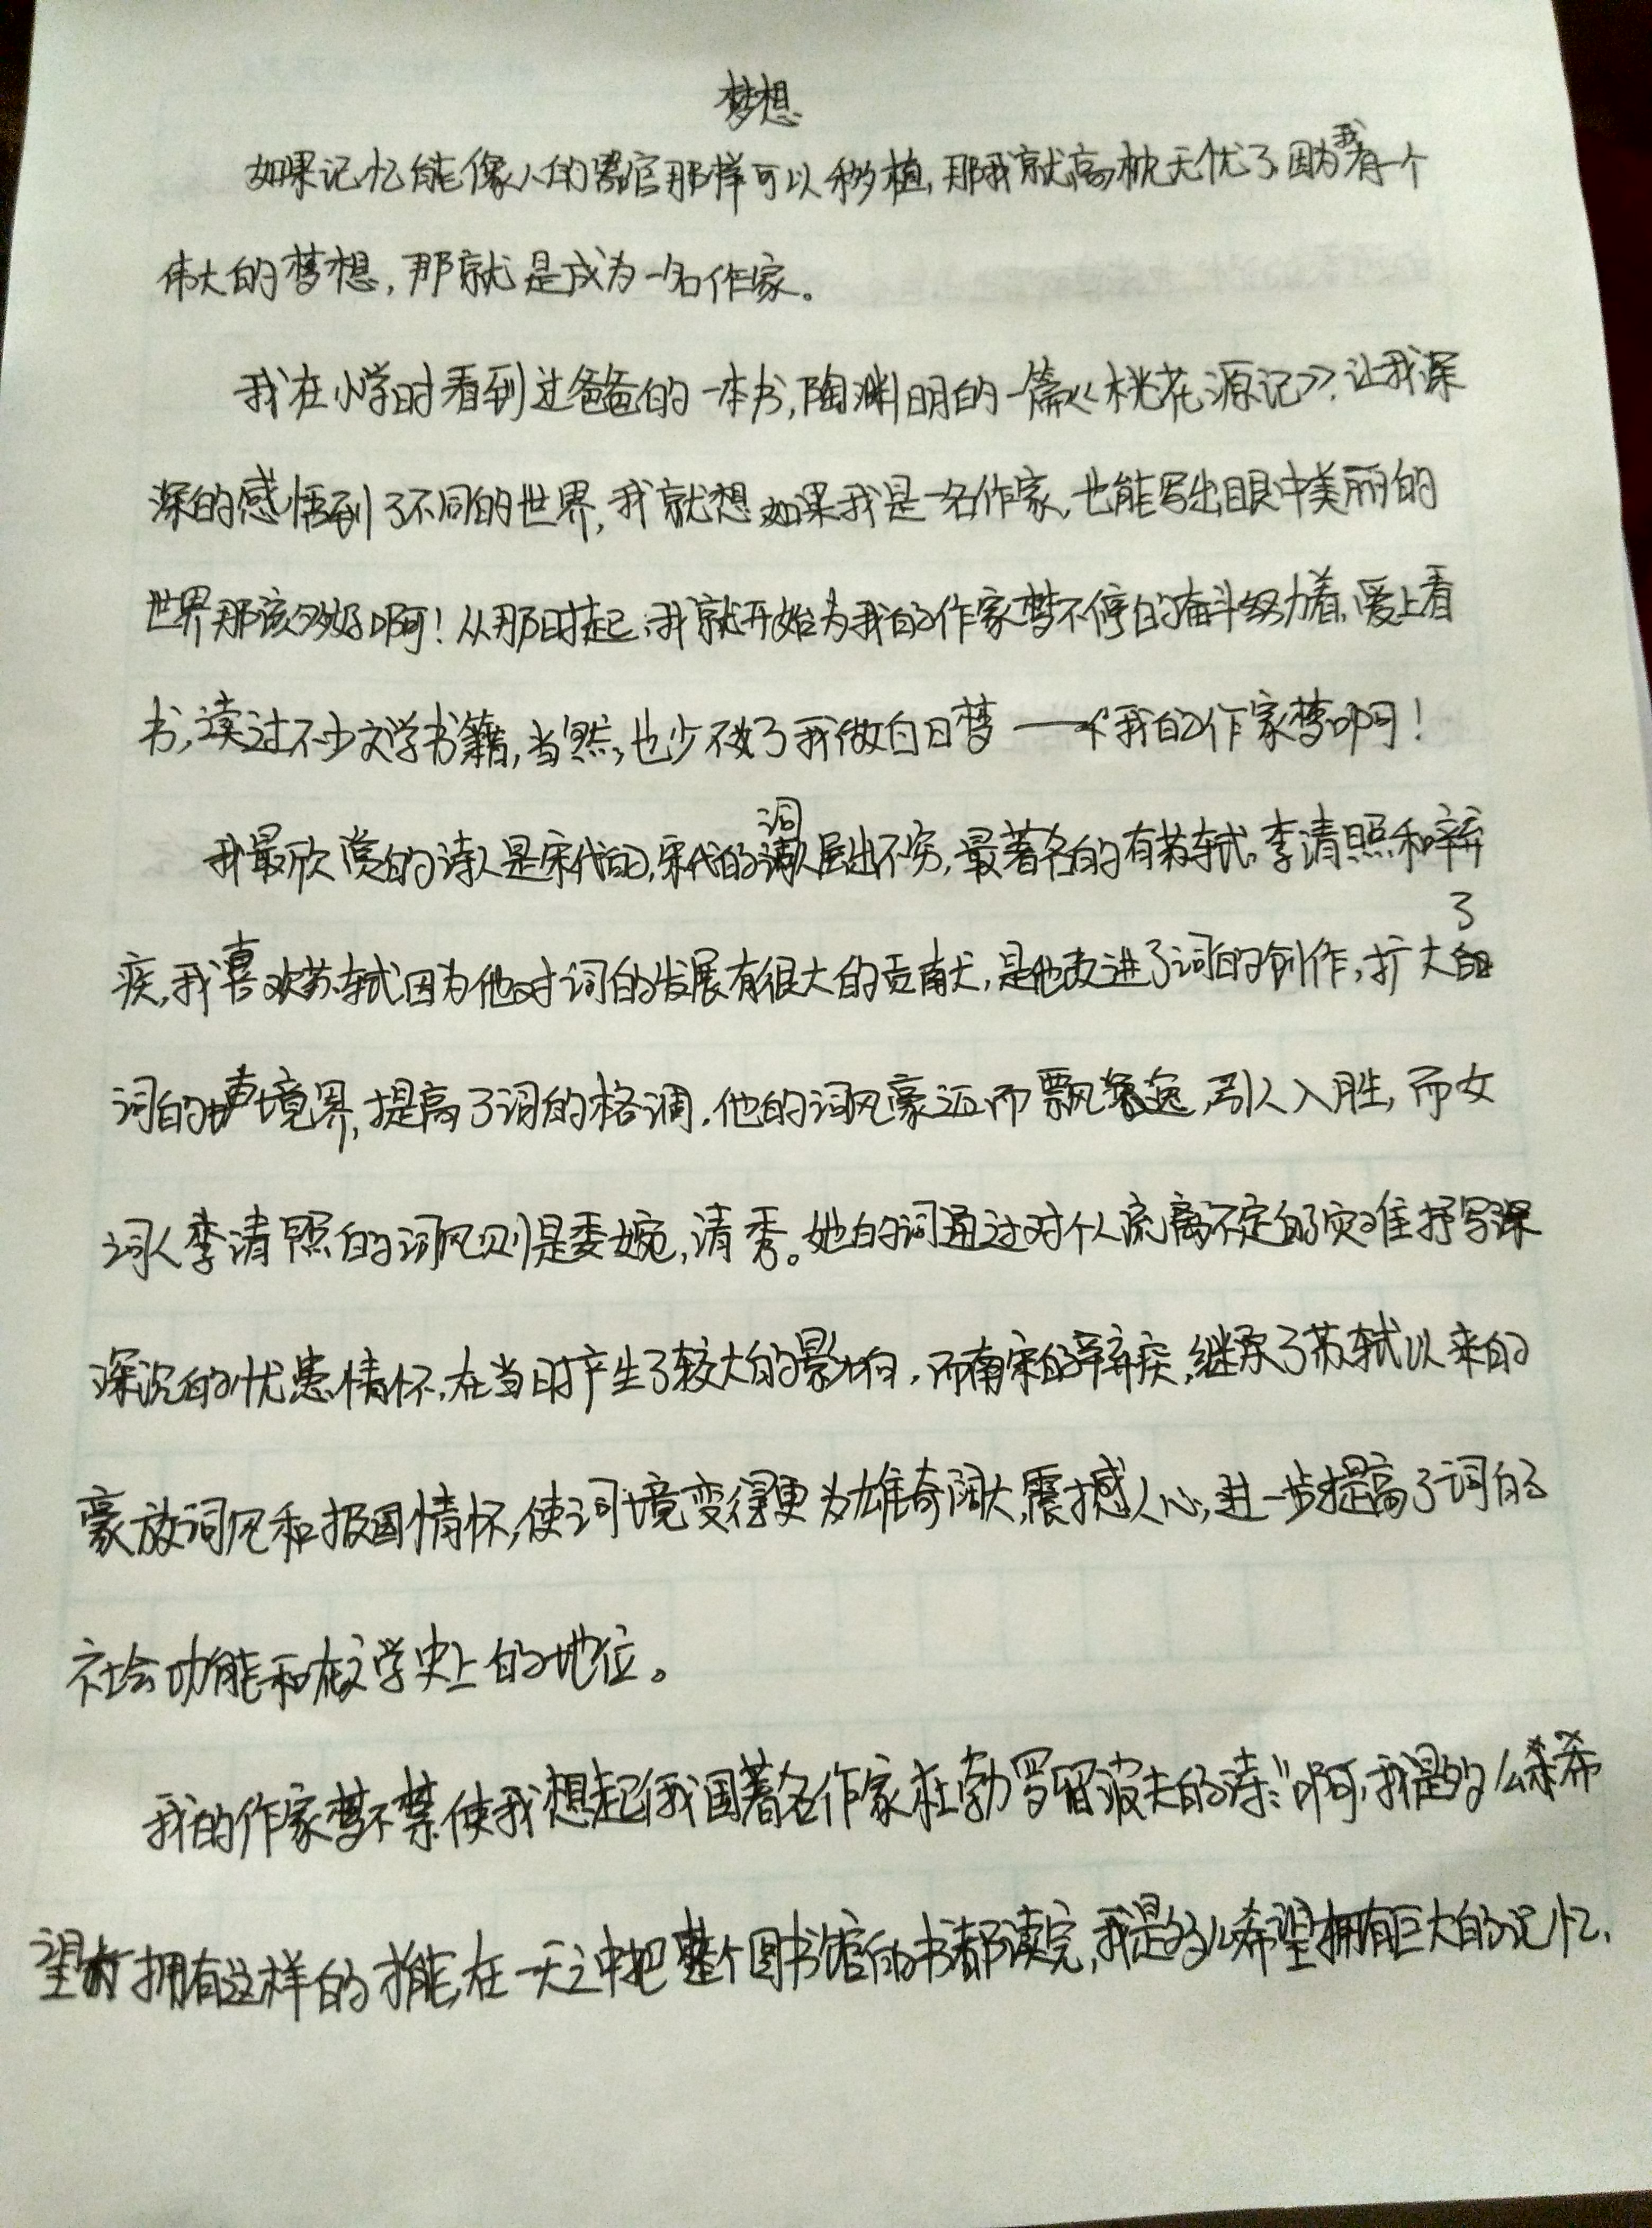 梦想
如果记忆能像人的器官那样可以移植,那我就高枕无忧了,因为我有一个
伟大的梦想,那就是成为一名作家。
我在小学时看到过爸爸的一本书,陶渊明的一篇《桃花源记》,让我深
深的感悟到了不同的世界,我就想如果我是一名作家,也能写出眼中美丽的
世界那该多好啊!从那时起,我就开始为我的作家梦不停的奋斗努力着,爱上看
书,读过不少文学书籍,当然,也少不了我做白日梦——我的作家梦啊!
我最欣赏的诗人是宋代的,宋代的词人层出不穷,最著名的有苏轼,李清照和辛弃
疾,我喜欢苏轼因为他对词的发展有很大的贡献,是他改进了词的创作,扩大了
词的境界,提高了词的格调,他的词风豪迈而飘逸,引人入胜,而女
词人李清照的词风则是委婉,清秀。她的词通过对个人流离不定的灾难抒写深
深沉的忧患情怀,在当时产生了较大的影响,而南宋的辛弃疾,继承了苏轼以来的
豪放词风和报国情怀,使词境变得更为雄奇阔大,震撼人心,进一步提高了词的
社会功能和在文学史上的地位。
我的作家梦不禁使我想起俄国著名作家杜勃罗留波夫的诗:“啊,我是多么希
望拥有这样的才能,在一天之中把整个图书馆的书都读完,我是多么希望拥有巨大的记忆,